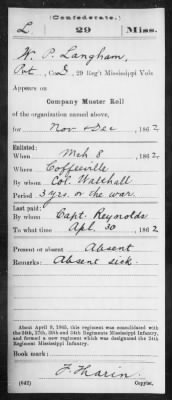 (Confederate.)
L. 29 Miss.
W. P. Langham,
Pvt, Co. D, 29 Reg't Mississippi Vols
Appears on
Company Muster Roll
of the organization named above,
for Nov & Dec, 1862
Enlisted:
When Mch 8, 1862
Where Coffeeville
By whom Col. Walthall
Period 3 yrs. or the war.
Last paid:
By whom Capt. Reynolds
To what time Apl. 30, 1862
Present or absent Absent
Remarks: Absent sick.
About April 9, 1865, this regiment was consolidated with
the 24th, 27th, 30th and 34th Regiments Mississippi Infantry,
and formed a new regiment which was designated the 24th
Regiment Mississippi Infantry.
Book mark:
F Tharin
(642) Copyist.